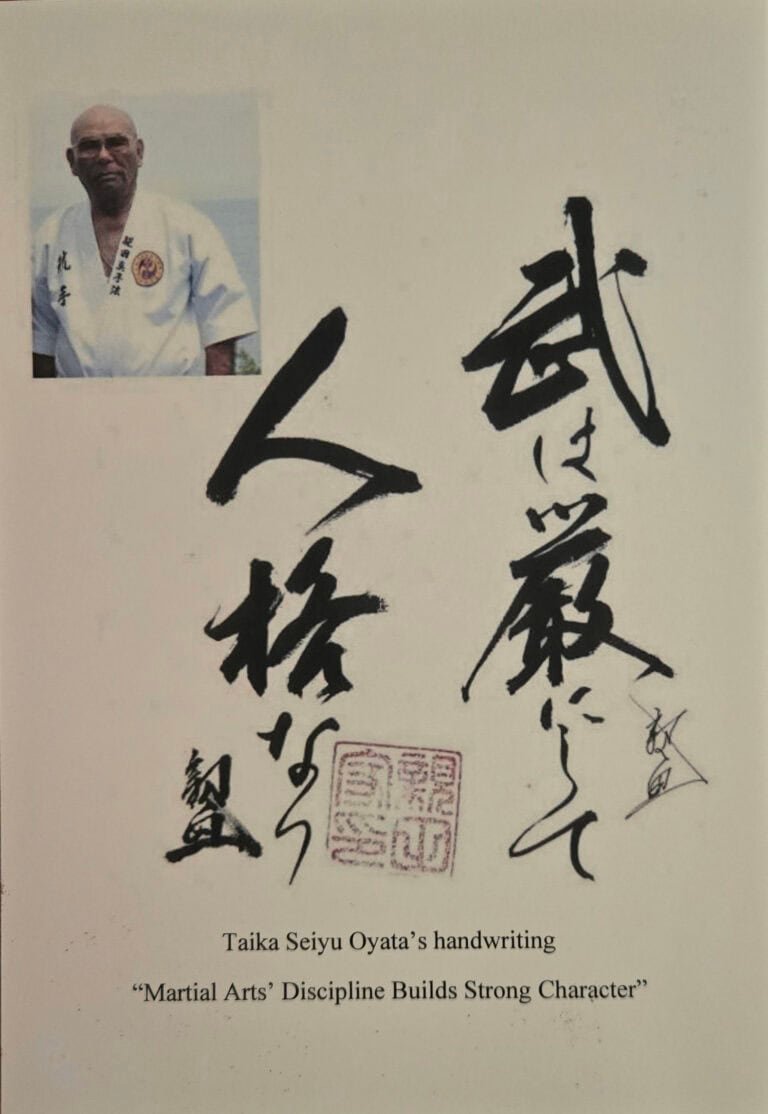 武は厳にして
人格なり
親田
親田
Taika Seiyu Oyata’s handwriting
“Martial Arts’ Discipline Builds Strong Character”